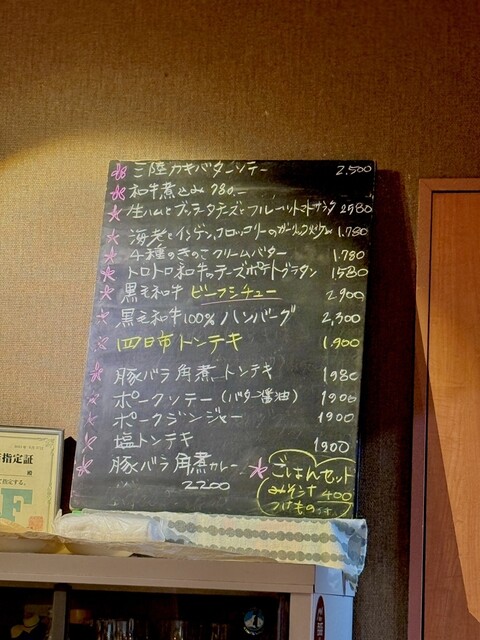 三陸カキバターソテー 2,500
和牛煮込み 980.-
生ハムとブッラータチーズとフルーツトマトサラダ 2580
海老とインゲン、ブロッコリーのガーリック 1,780
4種のきのこクリームバター 1,780
トロトロ和牛のチーズポテトグラタン 1580
黒毛和牛 ビーフシチュー 2,900
黒毛和牛100%ハンバーグ 2,300
四日市トンテキ 1,900
豚バラ角煮トンテキ 1980
ポークソテー(バター醤油) 1900
ポークジンジャー 1900
塩トンテキ 1900
豚バラ角煮カレー
2200
ごはんセット
みそ汁 400
つけもの付
指定証
殿